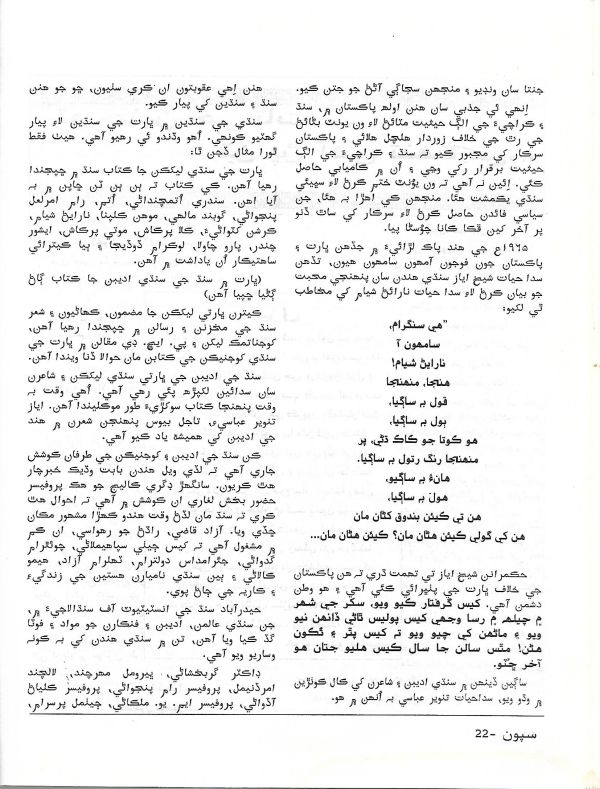 جنتا سان ونڊيو ۽ منجهن سڃاڳي آڻڻ جو جتن ڪيو.
اِنهي ئي جذبي سان هنن اولهه پاڪستان ۾، سنڌ
۽ ڪراچيءَ جي الڳ حيثيت مٽائڻ لاءِ ون يونٽ بڻائڻ
جي رٿ جي خلاف زوردار هلچل هلائي ۽ پاڪستان
سرڪار کي مجبور ڪيو ته سنڌ ۽ ڪراچيءَ جي الڳ
حيثيت برقرار رکي وڃي ۽ اُن ۾ ڪاميابي حاصل
ڪئي. اِئين نه آهي ته ون يوُنٽ ختم ڪرڻ لاءِ سڀيئي
سنڌي يڪمشت هئا. منجهن ڪي اهڙا به هئا، جن
سياسي فائدن حاصل ڪرڻ لاءِ سرڪار کي ساٿ ڏنو
پر آخر ڪين ڦڪا ڪانا چوُسڻا پيا.
۱۹۶۵ع جي هند پاڪ لڙائيءَ ۾ جڏهن ڀارت ۽
پاڪستان جون فوجون آمهون سامهون هيون، تڏهن
سدا حيات شيخ اياز سنڌي هندن سان پنهنجي محبت
جو بيان ڪرڻ لاءِ سدا حيات نارائڻ شيام کي مخاطب
ٿي لکيو:
"هي سنگرام،
سامهون آ
نارايڻ شيام!
هنجا، منهنجا
قول به ساڳيا،
ٻول به ساڳيا،
هو ڪوتا جو ڪاڪ ڌڻي، پر
منهنجا رنگ رتول به ساڳيا.
هانءُ به ساڳيو،
هول به ساڳيا،
هن تي ڪيئن بندوق کڻان مان
هن کي گولي ڪيئن هڻان مان؟ ڪيئن هڻان مان...
حڪمرانن شيخ اياز تي تهمت ڌري ته هن پاڪستان
جي خلاف ڀارت جي پٺڀرائي ڪئي آهي ۽ هو وطن
دشمن آهي. کيس گرفتار ڪيو ويو، سکر جي شهر
۾ چيلهه ۾ رسا وجهي کيس پوليس ٿاڻي ڏانهن نيو
ويو ۽ ماڻهن کي چيو ويو ته کيس پٿر ۽ ٿڪون
هڻن! مٿس سالن جا سال ڪيس هليو جتان هو
آخر ڇٽو.
ساڳين ڏينهن ۾ سنڌي اديبن ۽ شاعرن کي کال ڪوٺڙين
۾ وڌو ويو، سداحيات تنوير عباسي به اُنهن ۾ هو.
هنن اِهي عقوبتون ان ڪري سٺيون، ڇو جو هنن
سنڌ ۽ سنڌين کي پيار ڪيو.
سنڌي جي سنڌين ۾ ڀارت جي سنڌين لاءِ پيار
گهٽيو ڪونهي. اُهو وڌندو ئي رهيو آهي. هيٺ فقط
ٿورا مثال ڏجن ٿا:
ڀارت جي سنڌي ليکڪن جا ڪتاب سنڌ ۾ ڇپجندا
رهيا آهن. ڪي ڪتاب ته ٻن ٻن ٽن ڇاپن ۾ به
آيا آهن. سندري اُتمچنداڻي، اُتم، رام امرلعل
پنجواڻي، گوبند مالهي، موهن ڪلپنا، نارايڻ شيام،
ڪرشن کٽواڻيءَ، ڪلا پرڪاش، موتي پرڪاش، ايشور
چندر، پارو چاولا، لوڪرام ڏوڏيجا ۽ ٻيا ڪيترائي
ساهتيڪار اُن ياداشت ۾ آهن.
(ڀارت ۾ سنڌ جي سنڌي اديبن جا ڪتاب ڳاڻ
ڳڻيا ڇپيا آهن)
ڪيترن ڀارتي ليکڪن جا مضمون، ڪهاڻيون ۽ شعر
سنڌ جي مخزنن ۽ رسالن ۾ ڇپجندا رهيا آهن،
کوجناتمڪ ليکن ۽ پي. ايڇ. ڊي مقالن ۾ ڀارت جي
سنڌي کوجنيڪن جي ڪتابن مان حوالا ڏنا ويندا آهن.
سنڌ جي اديبن جي ڀارتي سنڌي ليکڪن ۽ شاعرن
سان سدائين لکپڙهه پئي رهي آهي. اُهي وقت به
وقت پنهنجا ڪتاب سوکڙيءَ طور موڪليندا آهن. اياز
تنوير عباسي، تاجل بيوس پنهنجن شعرن ۾ هند
جي اديبن کي هميشه ياد ڪيو آهي.
ڪن سنڌ جي اديبن ۽ کوجنيڪن جي طرفان ڪوشش
جاري آهي ته لڏي ويل هندن بابت وڌيڪ خبرچار
هٿ ڪريون. سانگهڙ ڊگري ڪاليج جو هڪ پروفيسر
حضور بخش لغاري ان ڪوشش ۾ آهي ته احوال هٿ
ڪري ته سنڌ مان لڏڻ وقت هندو کهڙا مشهور مکان
ڇڏي ويا. آزاد قاضي، راڌڻ جو رهواسي، ان ڪم
۾ مشغول آهي ته کيس جيلي سپاهيملاڻي، جوئٿرام
گدواڻي، جئرامداس دولترام، ٽهلرام آزاد، هيمو
ڪالاڻي ۽ ٻين سنڌي ناميارن هستين جي زندگيءَ
۽ ڪاريه جي ڄاڻ پوي.
حيدرآباد سنڌ جي انسٽيٽيوٽ آف سنڌالاجيءَ ۾،
جن سنڌي عالمن، اديبن ۽ فنڪارن جو مواد ۽ فوٽا
گڏ ڪيا ويا آهن، تن ۾ سنڌي هندن کي به ڪونه
وساريو ويو آهي.
ڊاڪٽر گربخشاڻي، ڀيرومل مهرچند، لالچند
امرڏنيمل، پروفيسر رام پنجواڻي، پروفيسر ڪلياڻ
آڏواڻي، پروفيسر ايم. يو. ملڪاڻي، چيٺمل پرسرام،
سپون -22